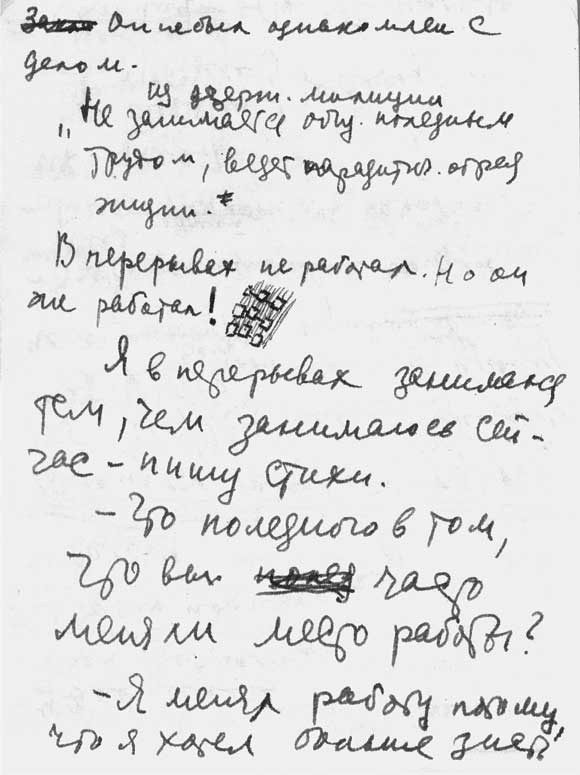 Он не был ознакомлен с
делом.
из дзерж. милиции
„Не занимается общ. полезным
трудом, ведет паразитич. образ
жизни."
В перерывах не работал. Но он
же работал!
Я в перерывах занимался
тем, чем занимаюсь сей-
час – пишу стихи.
– Что полезного в том,
что вы часто
меняли место работы?
– Я менял работу потому,
что я хотел больше знать